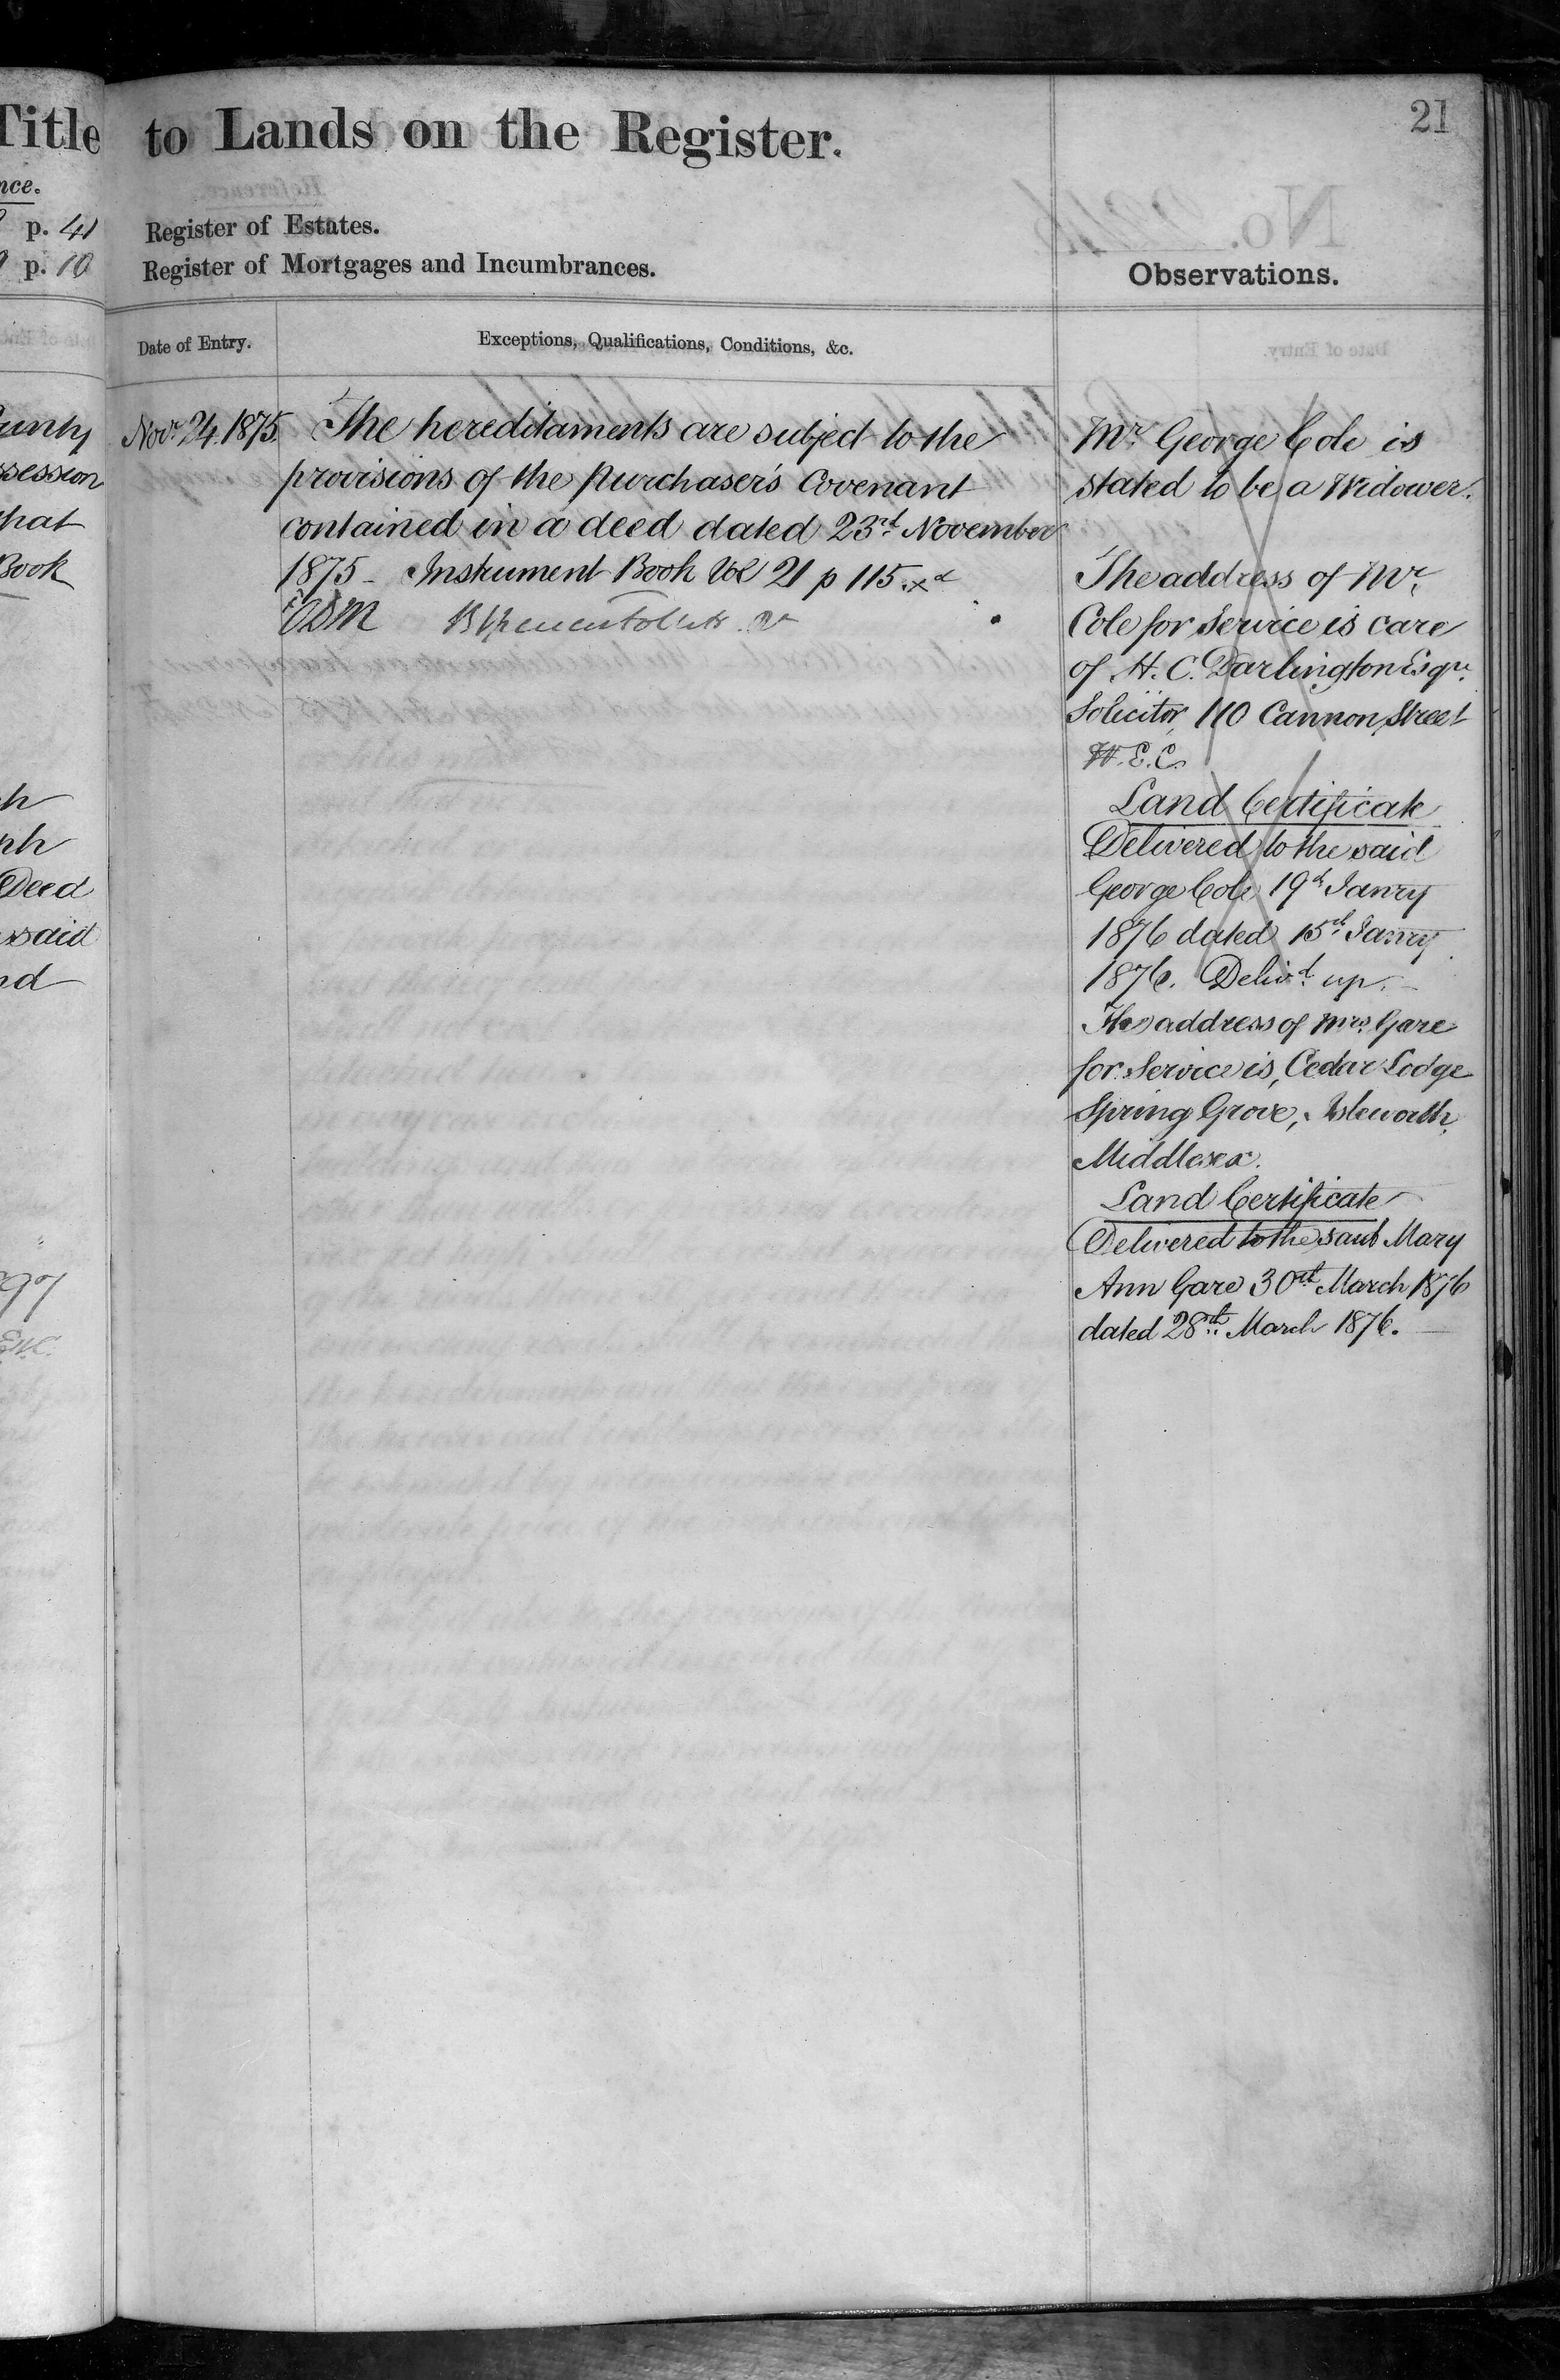 Title
nce.
p. 41
p. 10
unty
ssession
that
Book
h
ph
Deed
said
nd
to Lands on the Register.
21
Register of Estates.
Register of Mortgages and Incumbrances.
Observations.
Date of Entry.
Exceptions, Qualifications, Conditions, &c.
Novr. 24. 1875.
The hereditaments are subject to the
provisions of the purchaser's Covenant
contained in a deed dated 23rd November
1875 - Instrument Book Vol 21 p 115.
Mr. George Cole is
stated to be a Widower.
The address of Mr.
Cole for Service is care
of H. C. Darlington Esqre.
Solicitor, 110 Cannon Street
W. E. C.
Land Certificate
Delivered to the said
George Cole 19th Janry
1876 dated 15th Janry
1876. Delivd. up. -
The address of Mrs. Gare
for Service is, Cedar Lodge
Spring Grove, Isleworth,
Middlesex.
Land Certificate
Delivered to the said Mary
Ann Gare 30th March 1876
dated 28th March 1876. -